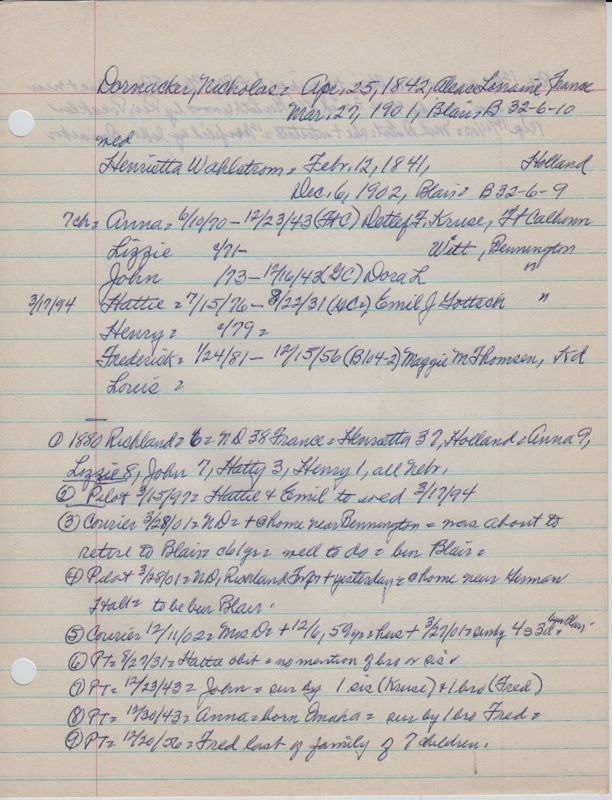 Dornacker, Nicholas = Apr. 25, 1842, Alsace Lorraine, France
Mar. 27, 1901, Blair = B 32-6-10
wed
Henrietta Wahlstrom = Febr. 12, 1841, Holland
Dec. 6, 1902, Blair = B 32-6-9
7ch = Anna = 6/10/70 - 12/23/43 (FtC) Detlef F. Kruse, Ft Calhoun
Lizzie c/71 - Witt, Bennington
John /73 - 12/16/43 (GC) Dora L "
3/17/94 Hattie = 7/15/76 - 8/22/31 (GC=) Emil J Gottsch "
Henry = c/79 =
Frederick = 1/24/81 - 12/15/56 (B104-2) Maggie M Thomsen, Kd
Louis =
① 1880 Richland = 6 = ND 38 France = Henrietta 37, Holland = Anna 9,
Lizzie 8, John 7, Hatty 3, Henry 1, all Nebr.
② Pilot 3/15/97 = Hattie & Emil to wed 3/17/94
③ Courier 3/28/01 = ND = + @ home near Bennington = was about to
retire to Blair = c61yr = well to do = bur Blair =
④ Pilot 3/28/01 = ND, Richland Twp + yesterday = @ home near Herman
Hall = to be bur Blair.
⑤ Courier 12/11/02 = Mrs D = + 12/6, 59yr = hus + 3/27/01 = sur by 4s 3d = bur Blair
⑥ PT = 8/27/31 = Hattie obit = no mention of bro or sis
⑦ PT = 12/23/43 = John = sur by 1 sis (Kruse) & 1 bro (Fred)
⑧ PT = 12/30/43 = Anna = born Omaha = sur by 1 bro Fred =
⑨ PT = 12/20/56 = Fred last of family of 7 children.